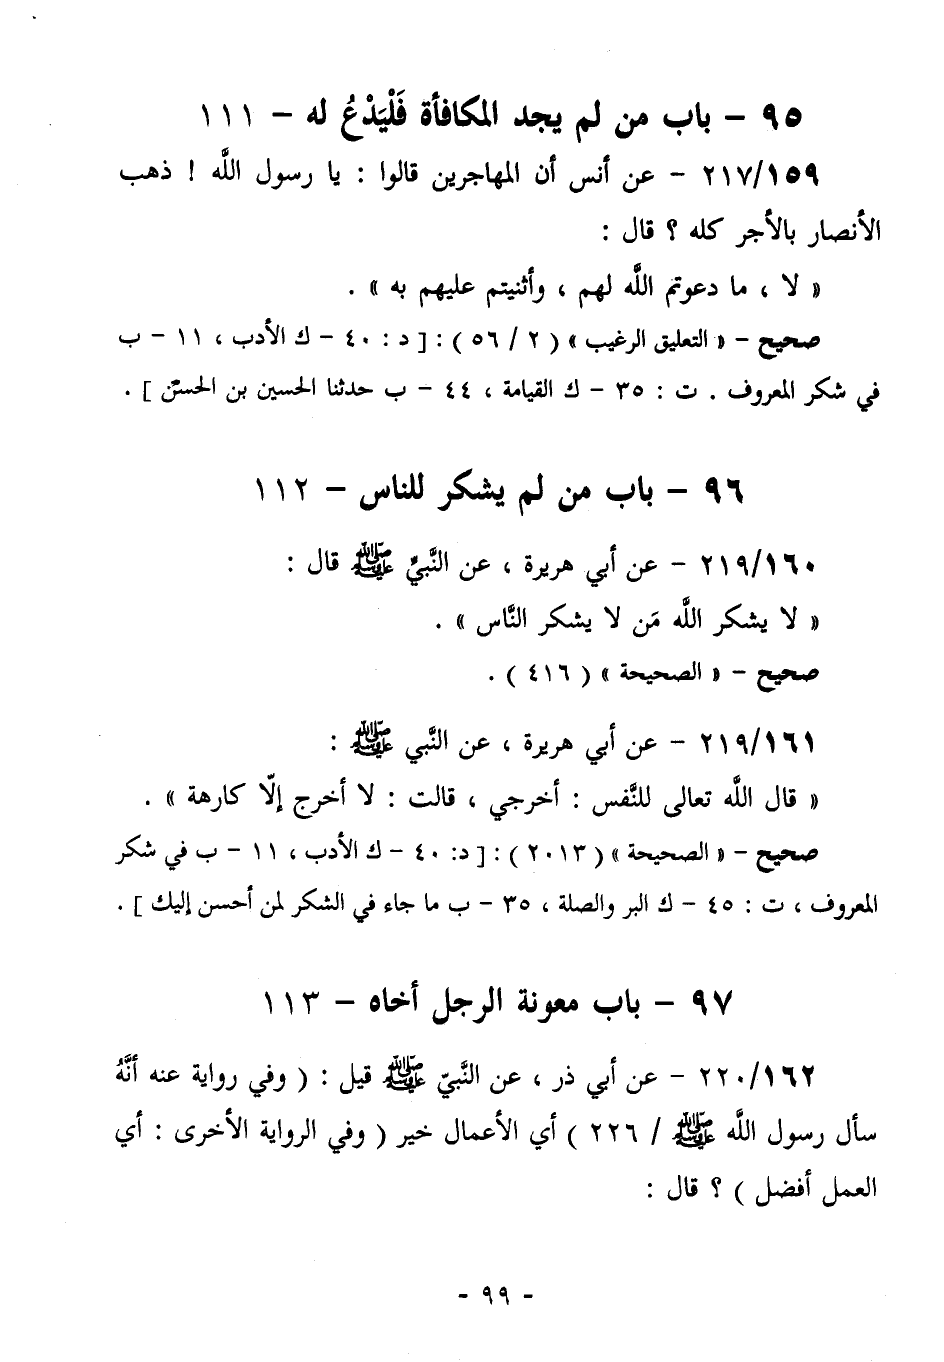 ٩٥ – باب من لم يجد المكافأة فَلْيَدْعُ له – ١١١
٢١٧/١٥٩ – عن أنس أن المهاجرين قالوا : يا رسول اللَّه ! ذهب
الأنصار بالأجر كله ؟ قال :
« لا ، ما دعوتم اللَّه لهم ، وأثنيتم عليهم به » .
صحيح – « التعليق الرغيب » ( ٢ / ٥٦ ) : [ د : ٤٠ – ك الأدب ، ١١ – ب
في شكر المعروف . ت : ٣٥ – ك القيامة ، ٤٤ – ب حدثنا الحسين بن الحسن ] .
٩٦ – باب من لم يشكر للناس – ١١٢
٢١٩/١٦٠ – عن أبي هريرة ، عن النَّبيِّ ﷺ قال :
« لا يشكر اللَّه مَن لا يشكر النَّاس » .
صحيح – « الصحيحة » ( ٤١٦ ) .
٢١٩/١٦١ – عن أبي هريرة ، عن النَّبي ﷺ :
« قال اللَّه تعالى للنَّفس : أخرجي ، قالت : لا أخرج إلّا كارهة » .
صحيح – « الصحيحة » ( ٢٠١٣ ) : [ د: ٤٠ – ك الأدب ، ١١ – ب في شكر
المعروف ، ت : ٤٥ – ك البر والصلة ، ٣٥ – ب ما جاء في الشكر لمن أحسن إليك ] .
٩٧ – باب معونة الرجل أخاه – ١١٣
٢٢٠/١٦٢ – عن أبي ذر ، عن النَّبيّ ﷺ قيل : ( وفي رواية عنه أنَّهُ
سأل رسول اللَّه ﷺ / ٢٢٦ ) أي الأعمال خير ( وفي الرواية الأخرى : أي
العمل أفضل ) ؟ قال :
- ٩٩ -